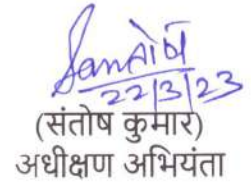 Santोष
22/3/23
(संतोष कुमार)
अधीक्षण अभियंता